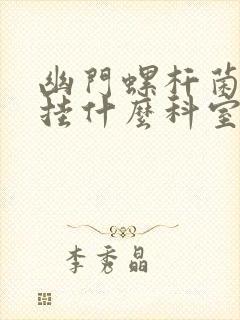 幽門螺杆菌
挂什麼科室
李秀晶